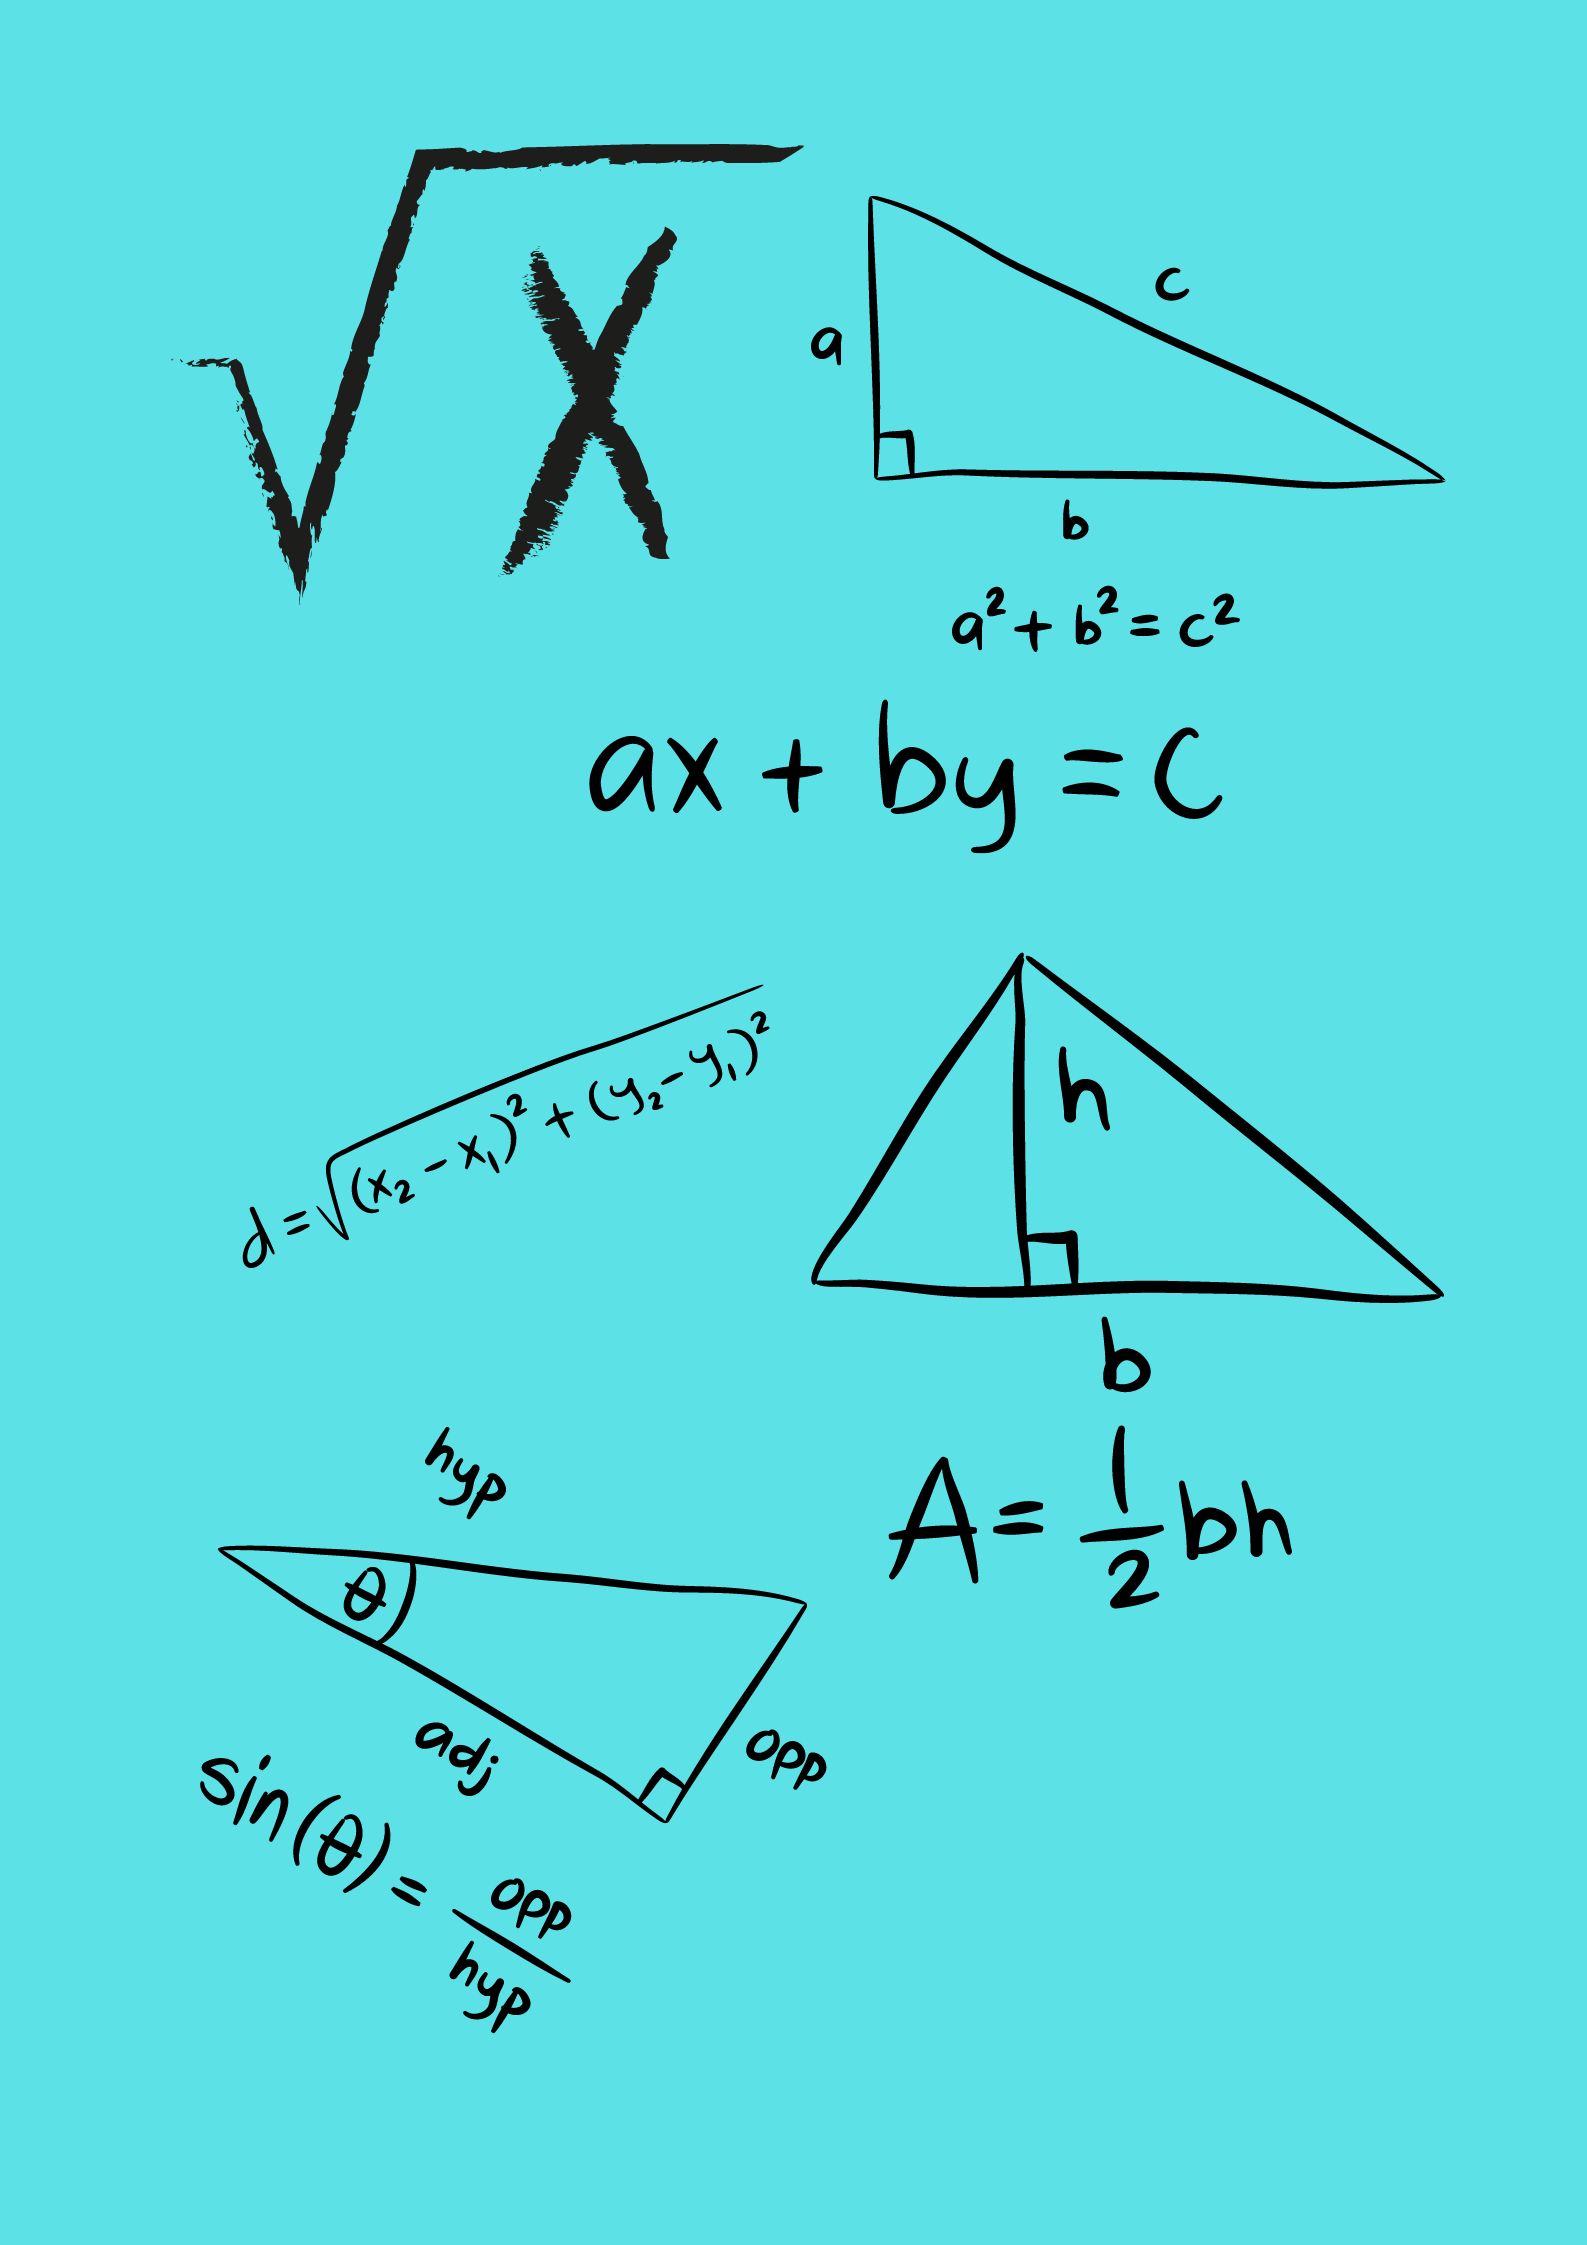 √x
c
a
b
a² + b² = c²
ax + by = c
d = √(x₂ − x₁)² + (y₂ − y₁)²
h
b
A = 1/2 bh
hyp
θ
adj
opp
sin(θ) = opp/hyp